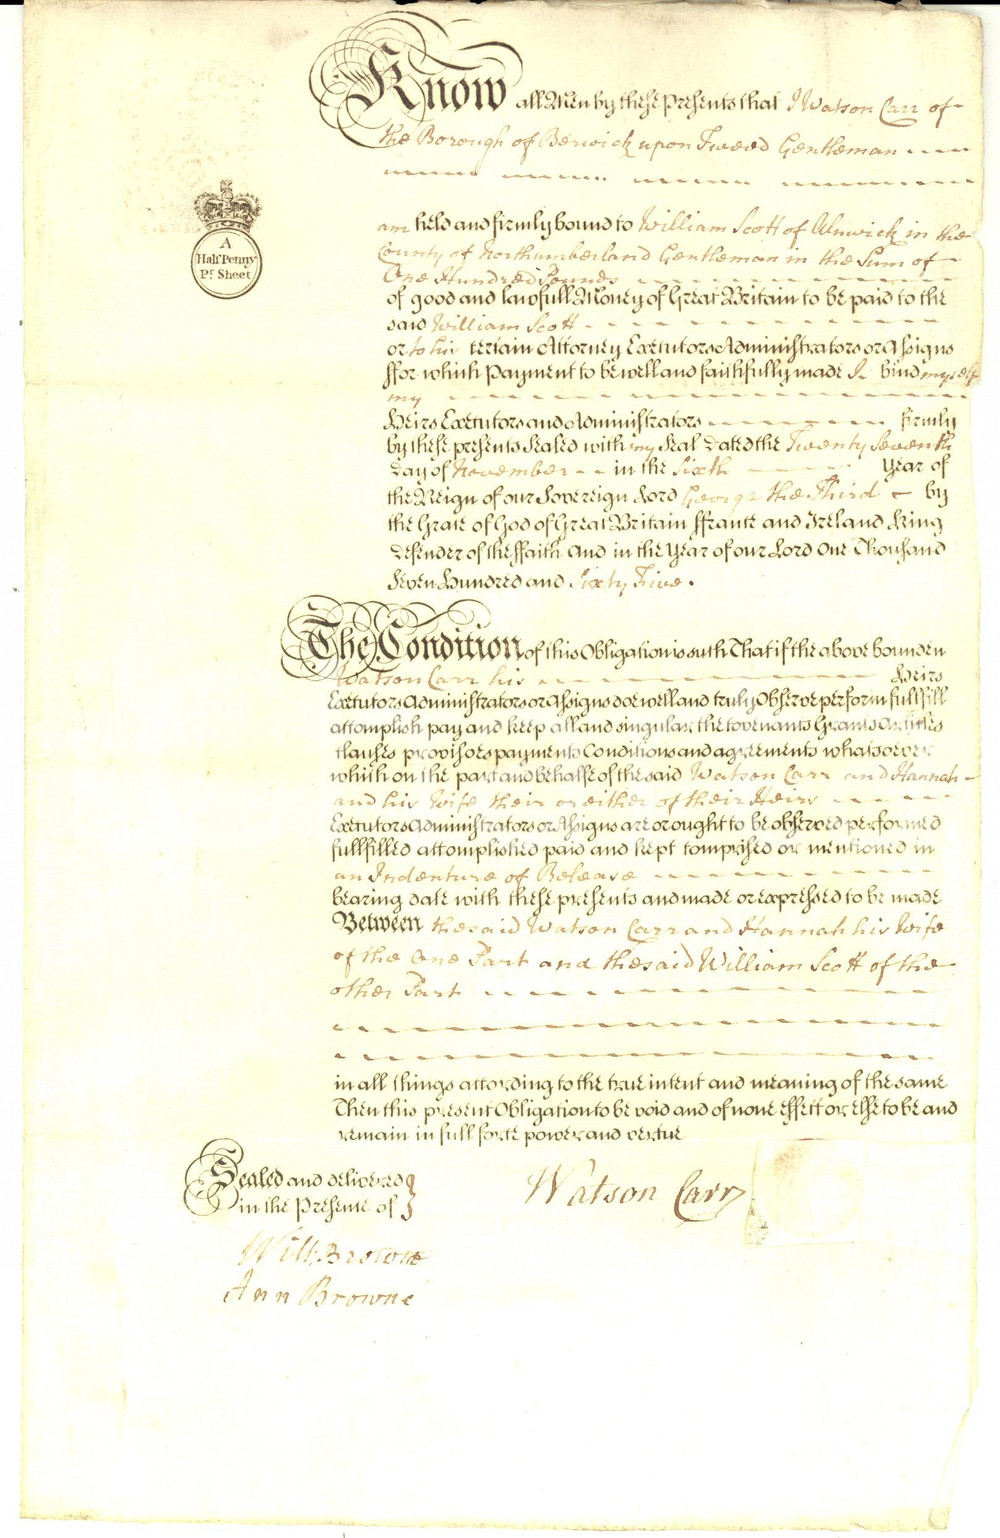 Know all Men by these Presents that I Watson Carr of
the Borough of Berwick upon Tweed Gentleman
A
Half Penny
Pr. Sheet
am held and firmly bound to William Scott of Alnwick in the
County of Northumberland Gentleman in the Sum of
One Hundred Pounds
of good and lawfull Money of Great Britain to be paid to the
said William Scott
or to his certain Attorney Executors Administrators or Assigns
ffor which Payment to be well and faithfully made I bind myself
my
Heirs Executors and Administrators firmly
by these presents Sealed with my Seal Dated the Twenty Seventh
Day of November in the Sixth Year of
the Reign of our Sovereign Lord George the Third by
the Grace of God of Great Britain ffrance and Ireland King
Defender of the ffaith And in the Year of our Lord One Thousand
Seven Hundred and Sixty Five.
The Condition of this Obligation is such That if the above bounden
Watson Carr his Heirs
Executors Administrators or Assigns do well and truly Observe perform fullfill
accomplish pay and keep all and singular the Covenants Grants Articles
Clauses provisoes payments Conditions and agreements whatsoever
which on the part and behalfe of the said Watson Carr and Hannah
and his Wife their or either of their Heirs
Executors Administrators or Assigns are or ought to be observed performed
fullfilled accomplished paid and kept comprised or mentioned in
an Indenture of Release
bearing date with these presents and made or expressed to be made
Between the said Watson Carr and Hannah his Wife
of the One Part and the said William Scott of the
other Part
in all things according to the true intent and meaning of the same
Then this present Obligation to be void and of none effect or else to be and
remain in full force power and vertue
Sealed and delivered
in the Presence of
Watson Carr
Will: Browne
Ann Browne